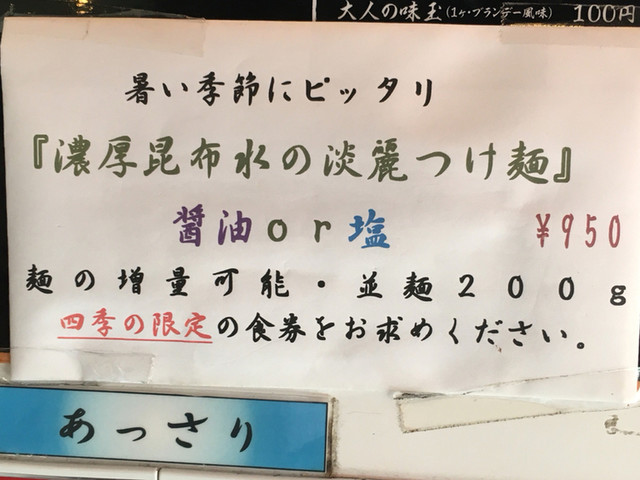 大人の味玉(1ヶ・ブランデー風味) 100円
暑い季節にピッタリ
『濃厚昆布水の淡麗つけ麺』
醤油or塩 ¥950
麺の増量可能・並麺200g
四季の限定の食券をお求めください。
あっさり